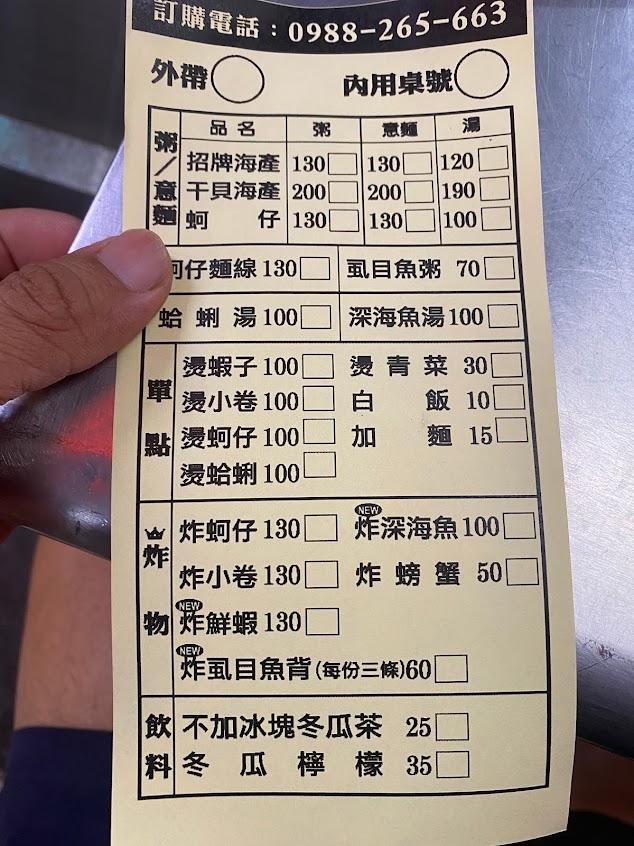 訂購電話：0988-265-663
外帶 內用桌號
粥/意麵
品名 粥 意麵 湯
招牌海產 130 130 120
干貝海產 200 200 190
蚵仔 130 130 100
蚵仔麵線 130 虱目魚粥 70
蛤蜊湯 100 深海魚湯 100
單點
燙蝦子 100 燙青菜 30
燙小卷 100 白飯 10
燙蚵仔 100 加麵 15
燙蛤蜊 100
炸物
炸蚵仔 130 NEW 炸深海魚 100
炸小卷 130 炸螃蟹 50
NEW 炸鮮蝦 130
NEW 炸虱目魚背(每份三條) 60
飲料
不加冰塊冬瓜茶 25
冬瓜檸檬 35